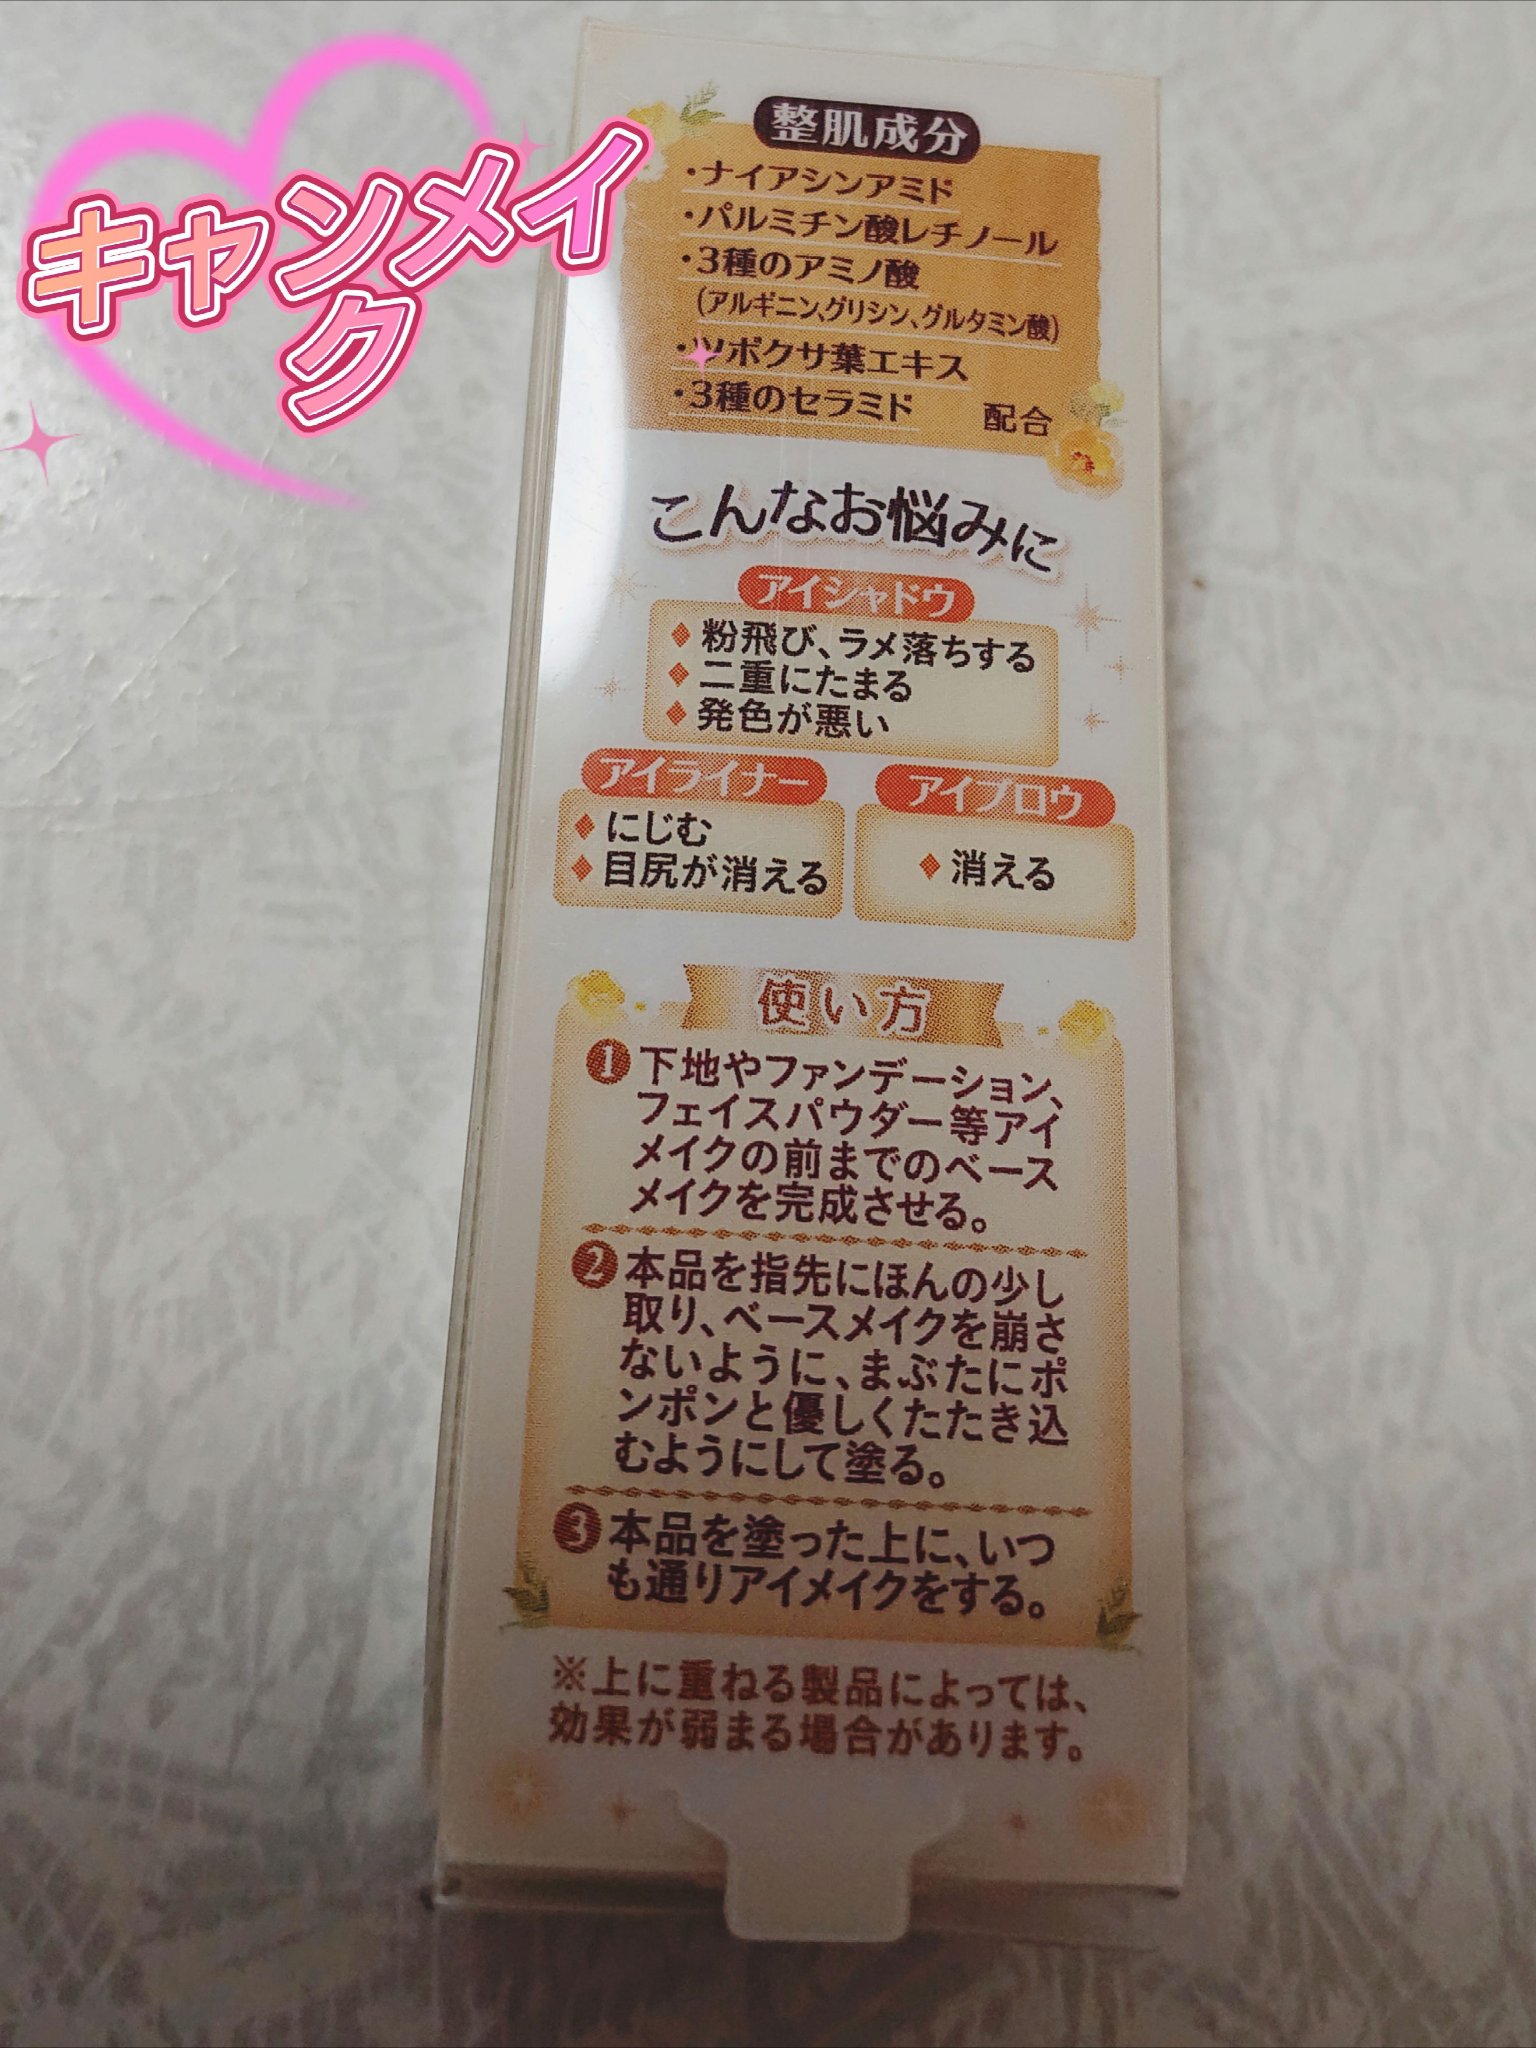 キャンメイ
ク
整肌成分
・ナイアシンアミド
・パルミチン酸レチノール
・3種のアミノ酸
(アルギニン、グリシン、グルタミン酸)
・ツボクサ葉エキス
・3種のセラミド 配合
こんなお悩みに
アイシャドウ
◆粉飛び、ラメ落ちする
◆二重にたまる
◆発色が悪い
アイライナー
◆にじむ
◆目尻が消える
アイブロウ
◆消える
使い方
❶下地やファンデーション、
フェイスパウダー等アイ
メイクの前までのベース
メイクを完成させる。
❷本品を指先にほんの少し
取り、ベースメイクを崩さ
ないように、まぶたにポ
ンポンと優しくたたき込
むようにして塗る。
❸本品を塗った上に、いつ
も通りアイメイクをする。
※上に重ねる製品によっては、
効果が弱まる場合があります。